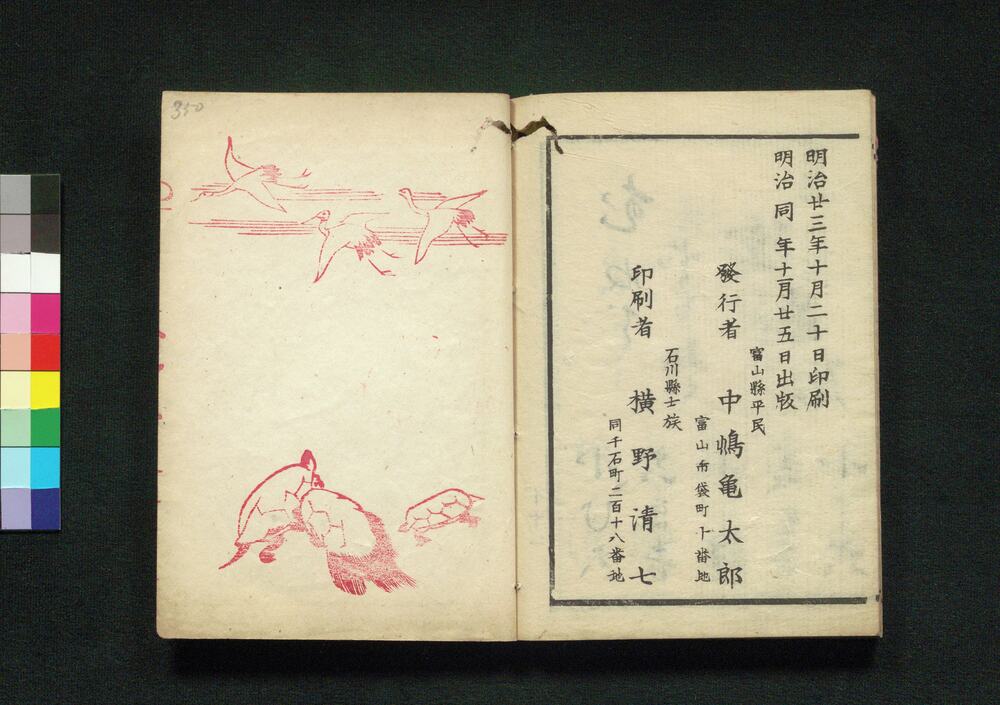 明治廿三年十月二十日印刷
明治同年十一月廿五日出版
富山縣平民
發行者 中嶋亀太郎
富山市袋町十番地
石川縣士族
印刷者 横野清七
同千石町二百十八番地
350